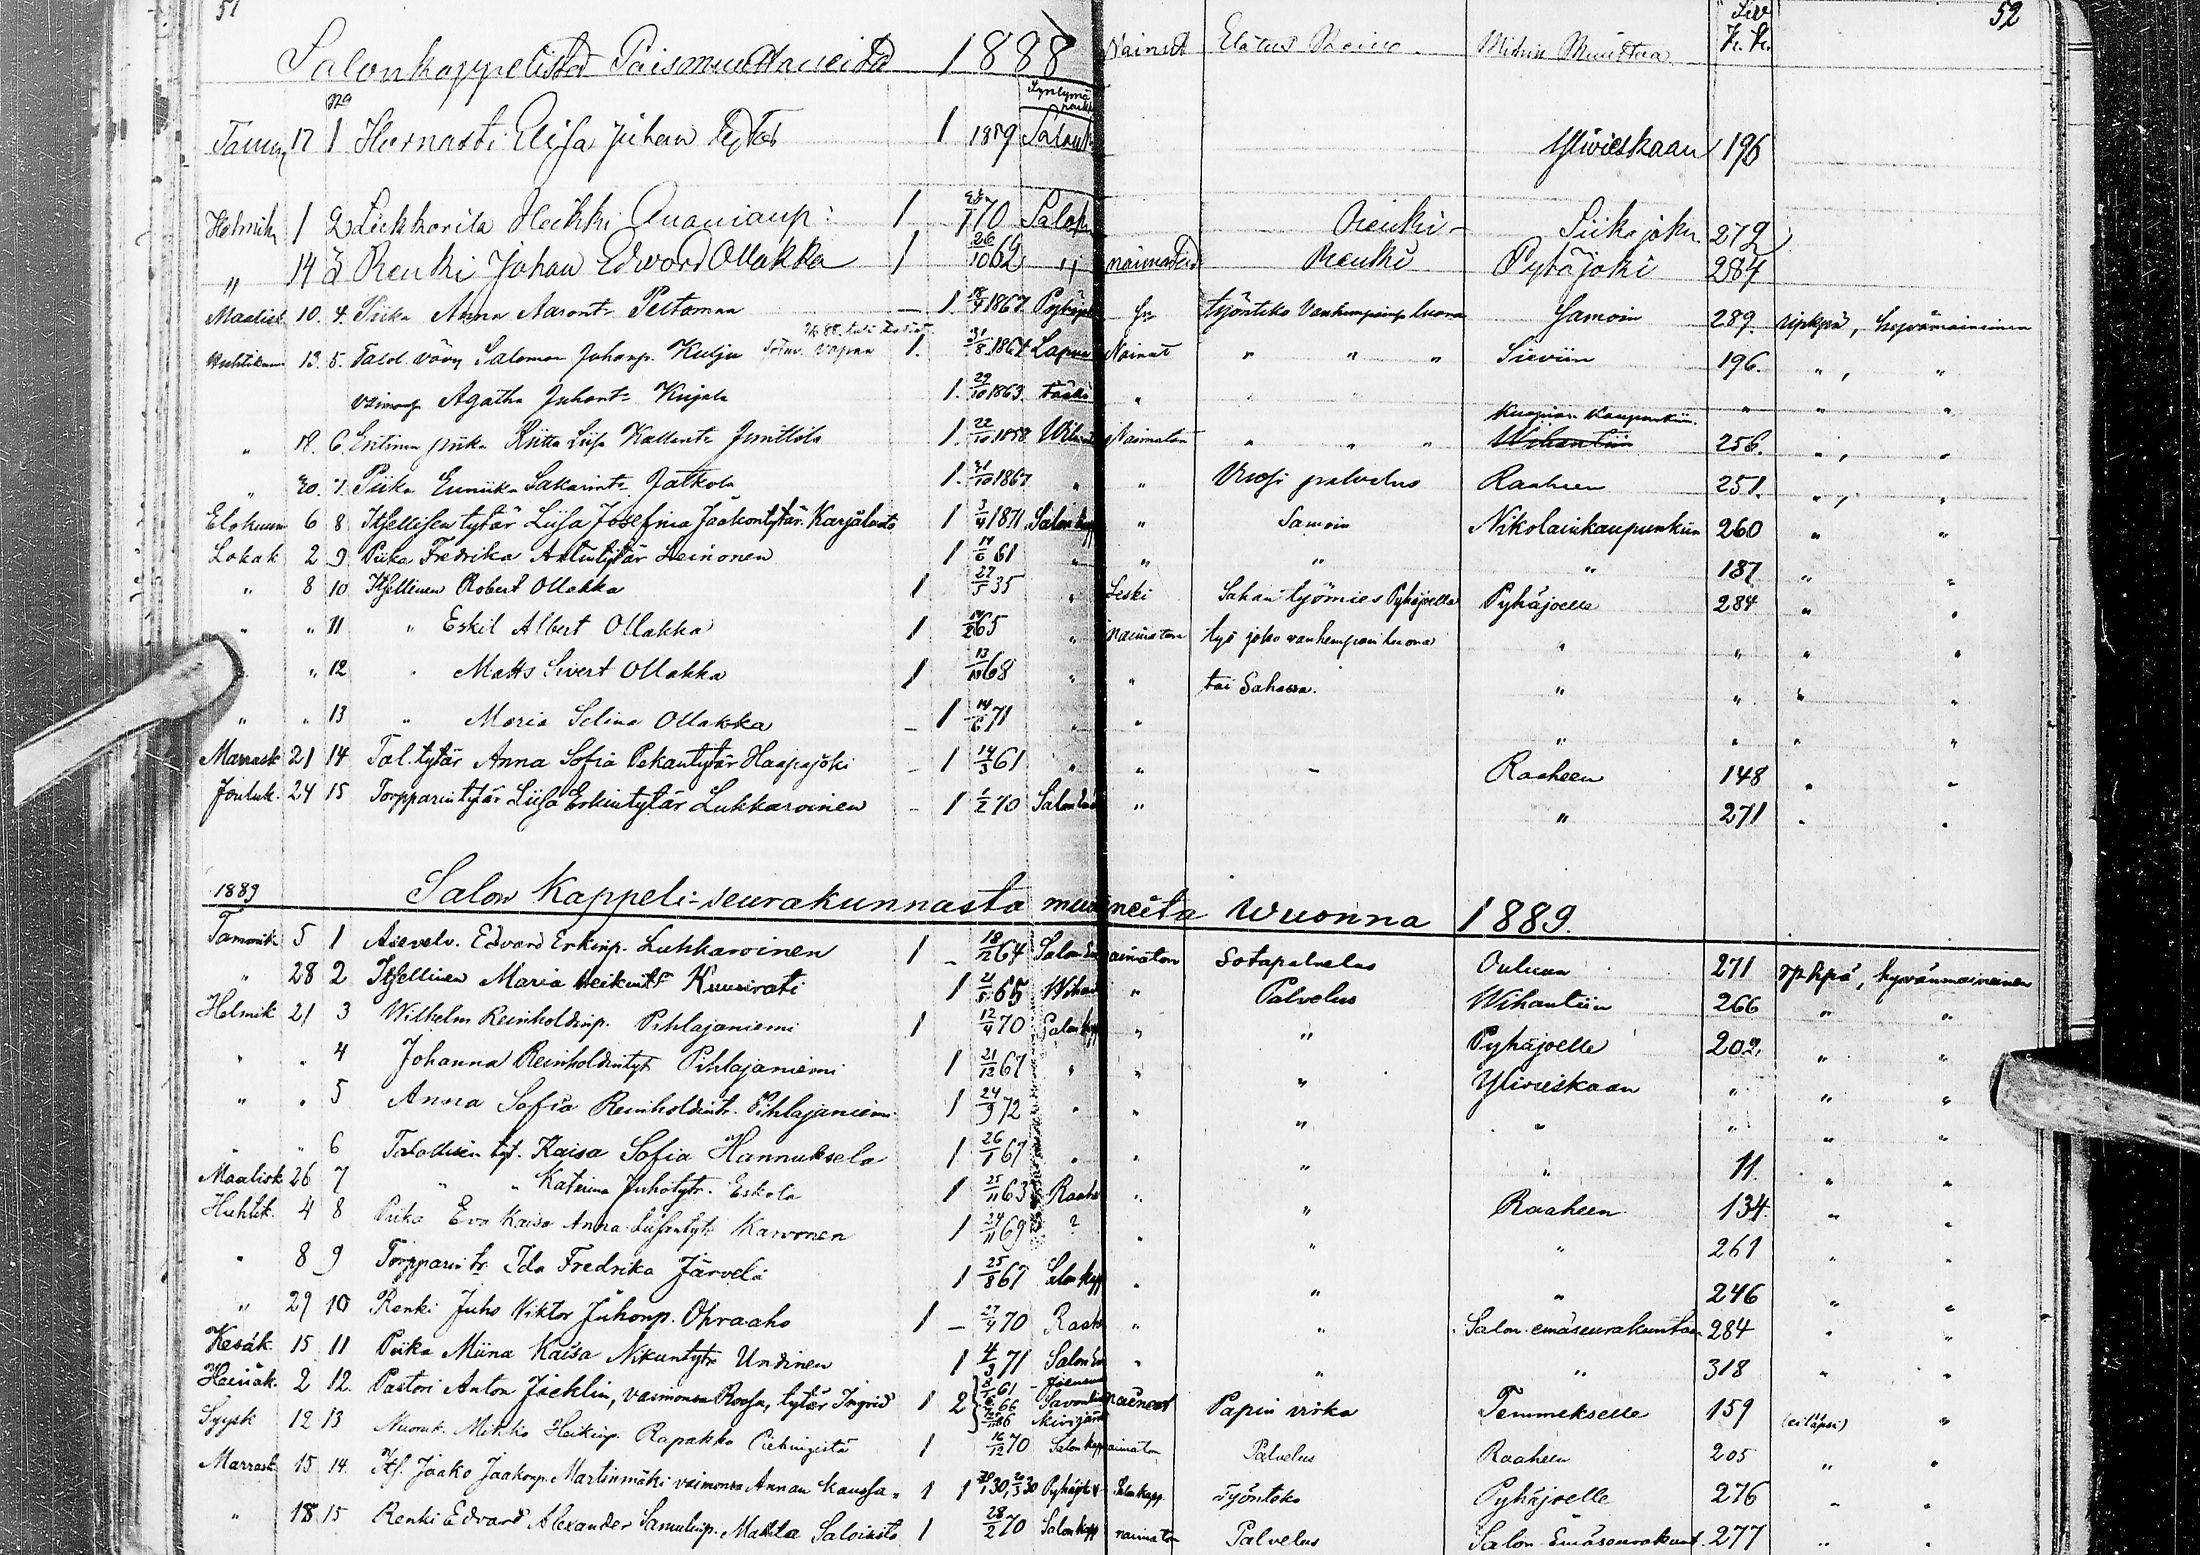 51 52
Salonkappelista Poismuuttaneita 1888 Naineet Elatus Keino Mihin Muuttaa Siv
No Syntymä paikka
17 1 Hurnasti Elisa Juhan tytär 1 1859 Salon Ylivieskaan 196
Helmik 1 2 Liikkarila Heikki 1 70 Salon Renki Siikajoki 279
" 14 3 Renki Johan Edward Ollakka 1 26/10 62 " naimaton Renki Pyhäjoki 284
Maalisk 10. 4. Piika Anna Aaront. Peltoman — 1. 1867 työnteko vanhempainsa luona Samoin 289. ripkpä, hyvämaininen
Huhtikuu 13. 5. Talol. vävy Salomon Juhanp. Kulju 1. 31/8 1864 Lapua Nainut " " " Sieviin 196. " , "
vaimonsa Agatha Juhant. Kujala 1. 29/10 1863. täällä " " " " " "
" 18. 6. Entinen piika Riitta Liisa Kallent. Junttila 1. 22/10 1858 Naimaton " " " Kuopion kaupunkiin. Wihantiin 256. " , "
" 20. 7. Piika Eunika Sakarint. Jatkola 1. 31/10 1867 " " Vuosi palvelus Raaheen 251. " , "
Elokuun 6 8 Itsellisen tytär Liisa Josefina Jaakontytär Karjaluoto 1 3/4 1871 Salon kapp " Samoin Nikolainkaupunkiin 260 " "
Lokak 2 9 Piika Fredrika Antintytär Leinonen 1 61 " " " " 187 " "
" 8 10 Itsellinen Robert Ollakka 1 27/5 35 " Leski Sahan työmies Pyhäjoella Pyhäjoelle 284 " "
" " 11 " Eskil Albert Ollakka 1 65 " naimaton työ joko vanhempain luona " " " "
" " 12 " Matts Sivert Ollakka 1 13/10 68 " " tai Sahassa. " " " "
" " 13 " Maria Selina Ollakka — 1 14/6 71 " " " " " "
Marrask 21 14 Tal. tytär Anna Sofia Pekantytär Haapajoki — 1 14/3 61 " " - Raaheen 148 " "
Jouluk. 24 15 Torpparin tytär Liisa Erkintytär Lukkaroinen — 1 1/2 70 Salon " " 271 " "
1889 Salon Kappeli-seurakunnasta muuttaneita Wuonna 1889.
Tammik 5 1 Asevelv. Edvard Erkinp. Lukkaroinen 1 — 18/12 64 Salon naimaton Sotapalvelus Ouluun 271 rpkpä, hyvänmaineinen
" 28 2 Itsellinen Maria Heikint. Kuusirati 1 65 Wihan " Palvelus Wihantiin 266 " "
Helmik 21 3 Wilhelm Reinholdinp. Pihlajaniemi 1 12/4 70 Salon kapp " " Pyhäjoelle 202 " "
" " 4 Johanna Reinholdintyt. Pihlajaniemi 1 21/12 67 " " " Ylivieskaan " " "
" " 5 Anna Sofia Reinholdint. Pihlajaniemi 1 24/9 72 " " " " " " "
" " 6 Talollisen tyt. Kaisa Sofia Hannuksela 1 26/1 67 " " " " 11. " "
Maalisk 26 7 " " Katerina Juhotytr. Eskola 1 25/11 63 Raahe " " Raaheen 134. " "
Huhtik. 4 8 Piika Eva Kaisa Anna-Liisantyt. Karvonen 1 24/11 69 ? " " " 261 " "
" 8 9 Torpparin tr. Ida Fredrika Järvelä 1 25/8 67 Salon kapp " " " 246 " "
" 29 10 Renki Juho Viktor Juhonp. Ohraaho 1 — 27/9 70 Raahe " " Salon emäseurakuntaan 284 " "
Kesäk. 15 11 Piika Miina Kaisa Nikuntytr. Undinen 1 4/3 71 Salon " " " 318 " "
Heinäk. 2 12. Pastori Anton Jäcklin, vaimonsa Roosa, tytär Ingrid 1 2 61 66 86 naineet Papin virka Temmekselle 159 (ei läpsi) "
Syysk 12 13 Nuoruk. Mikko Heikinp. Rapakko Piehingistä 1 16/12 70 Salon kapp naimaton Palvelus Raaheen 205 " "
Marrask 15 14. Its. Jaako Jaakonp. Martinmäki vaimonsa Annan kanssa 1 1 30, 30 Salon kapp. Työnteko Pyhäjoelle 276 " "
" 18 15 Renki Edvard Alexander Samulinp. Mattila Saloisista 1 28/2 70 Salon kapp naimaton Palvelus Salon Emäseurakunt. 277 " "